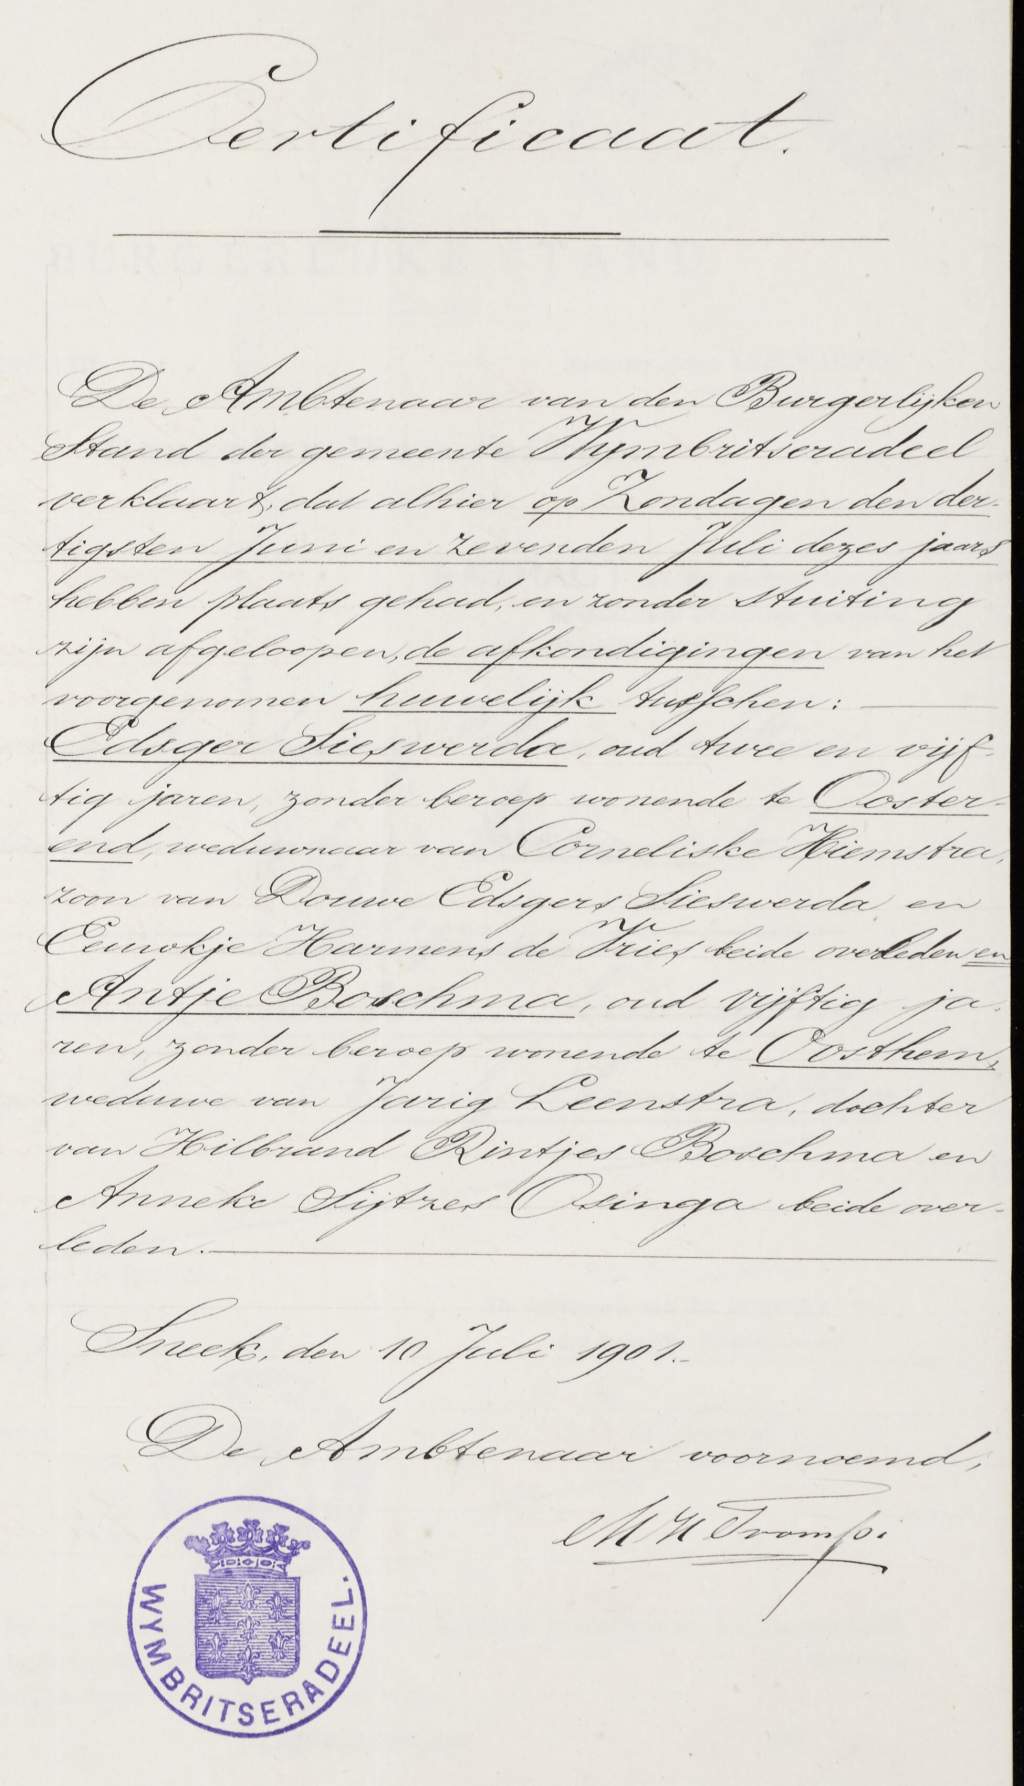 Certificaat.
De Ambtenaar van den Burgerlijken
Stand der gemeente Wymbritseradeel
verklaart, dat alhier op Zondagen den der-
tigsten Juni en zevenden Juli dezes jaars
hebben plaats gehad, en zonder stuiting
zijn afgeloopen, de afkondigingen van het
voorgenomen huwelijk tusschen:
Edsger Sieswerda, oud twee en vijf-
tig jaren, zonder beroep wonende te Ooster-
end, weduwnaar van Corneliske Hiemstra,
zoon van Douwe Edsgers Sieswerda en
Eeuwkje Harmens de Vries beide overleden en
Antje Boschma, oud vijftig ja-
ren, zonder beroep wonende te Oosthem,
weduwe van Jarig Leenstra, dochter
van Hilbrand Rintjes Boschma en
Anneke Sijtzes Osinga beide over-
leden.
Sneek, den 10 Juli 1901.
De Ambtenaar voornoemd,
MH Tromp
WYMBRITSERADEEL.